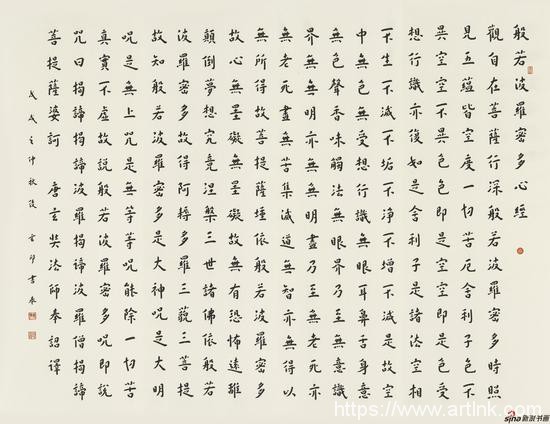 般若波羅密多心經
觀自在菩薩行深般若波羅密多時照
見五蘊皆空度一切苦厄舍利子色不
異空空不異色色即是空空即是色受
想行識亦復如是舍利子是諸法空相
不生不滅不垢不淨不增不減是故空
中無色無受想行識無眼耳鼻舌身意
無色聲香味觸法無眼界乃至無意識
界無無明亦無無明盡乃至無老死亦
無老死盡無苦集滅道無智亦無得以
無所得故菩提薩埵依般若波羅密多
故心無罣礙無罣礙故無有恐怖遠離
顛倒夢想究竟涅槃三世諸佛依般若
波羅密多故得阿耨多羅三藐三菩提
故知般若波羅密多是大神呪是大明
呪是無上呪是無等等呪能除一切苦
真實不虛故說般若波羅密多呪即說
呪曰揭諦揭諦波羅揭諦波羅僧揭諦
菩提薩婆訶 唐玄奘法師奉詔譯
戊戌之仲秋後
https://www.artlnk.com/
sina新浪书画